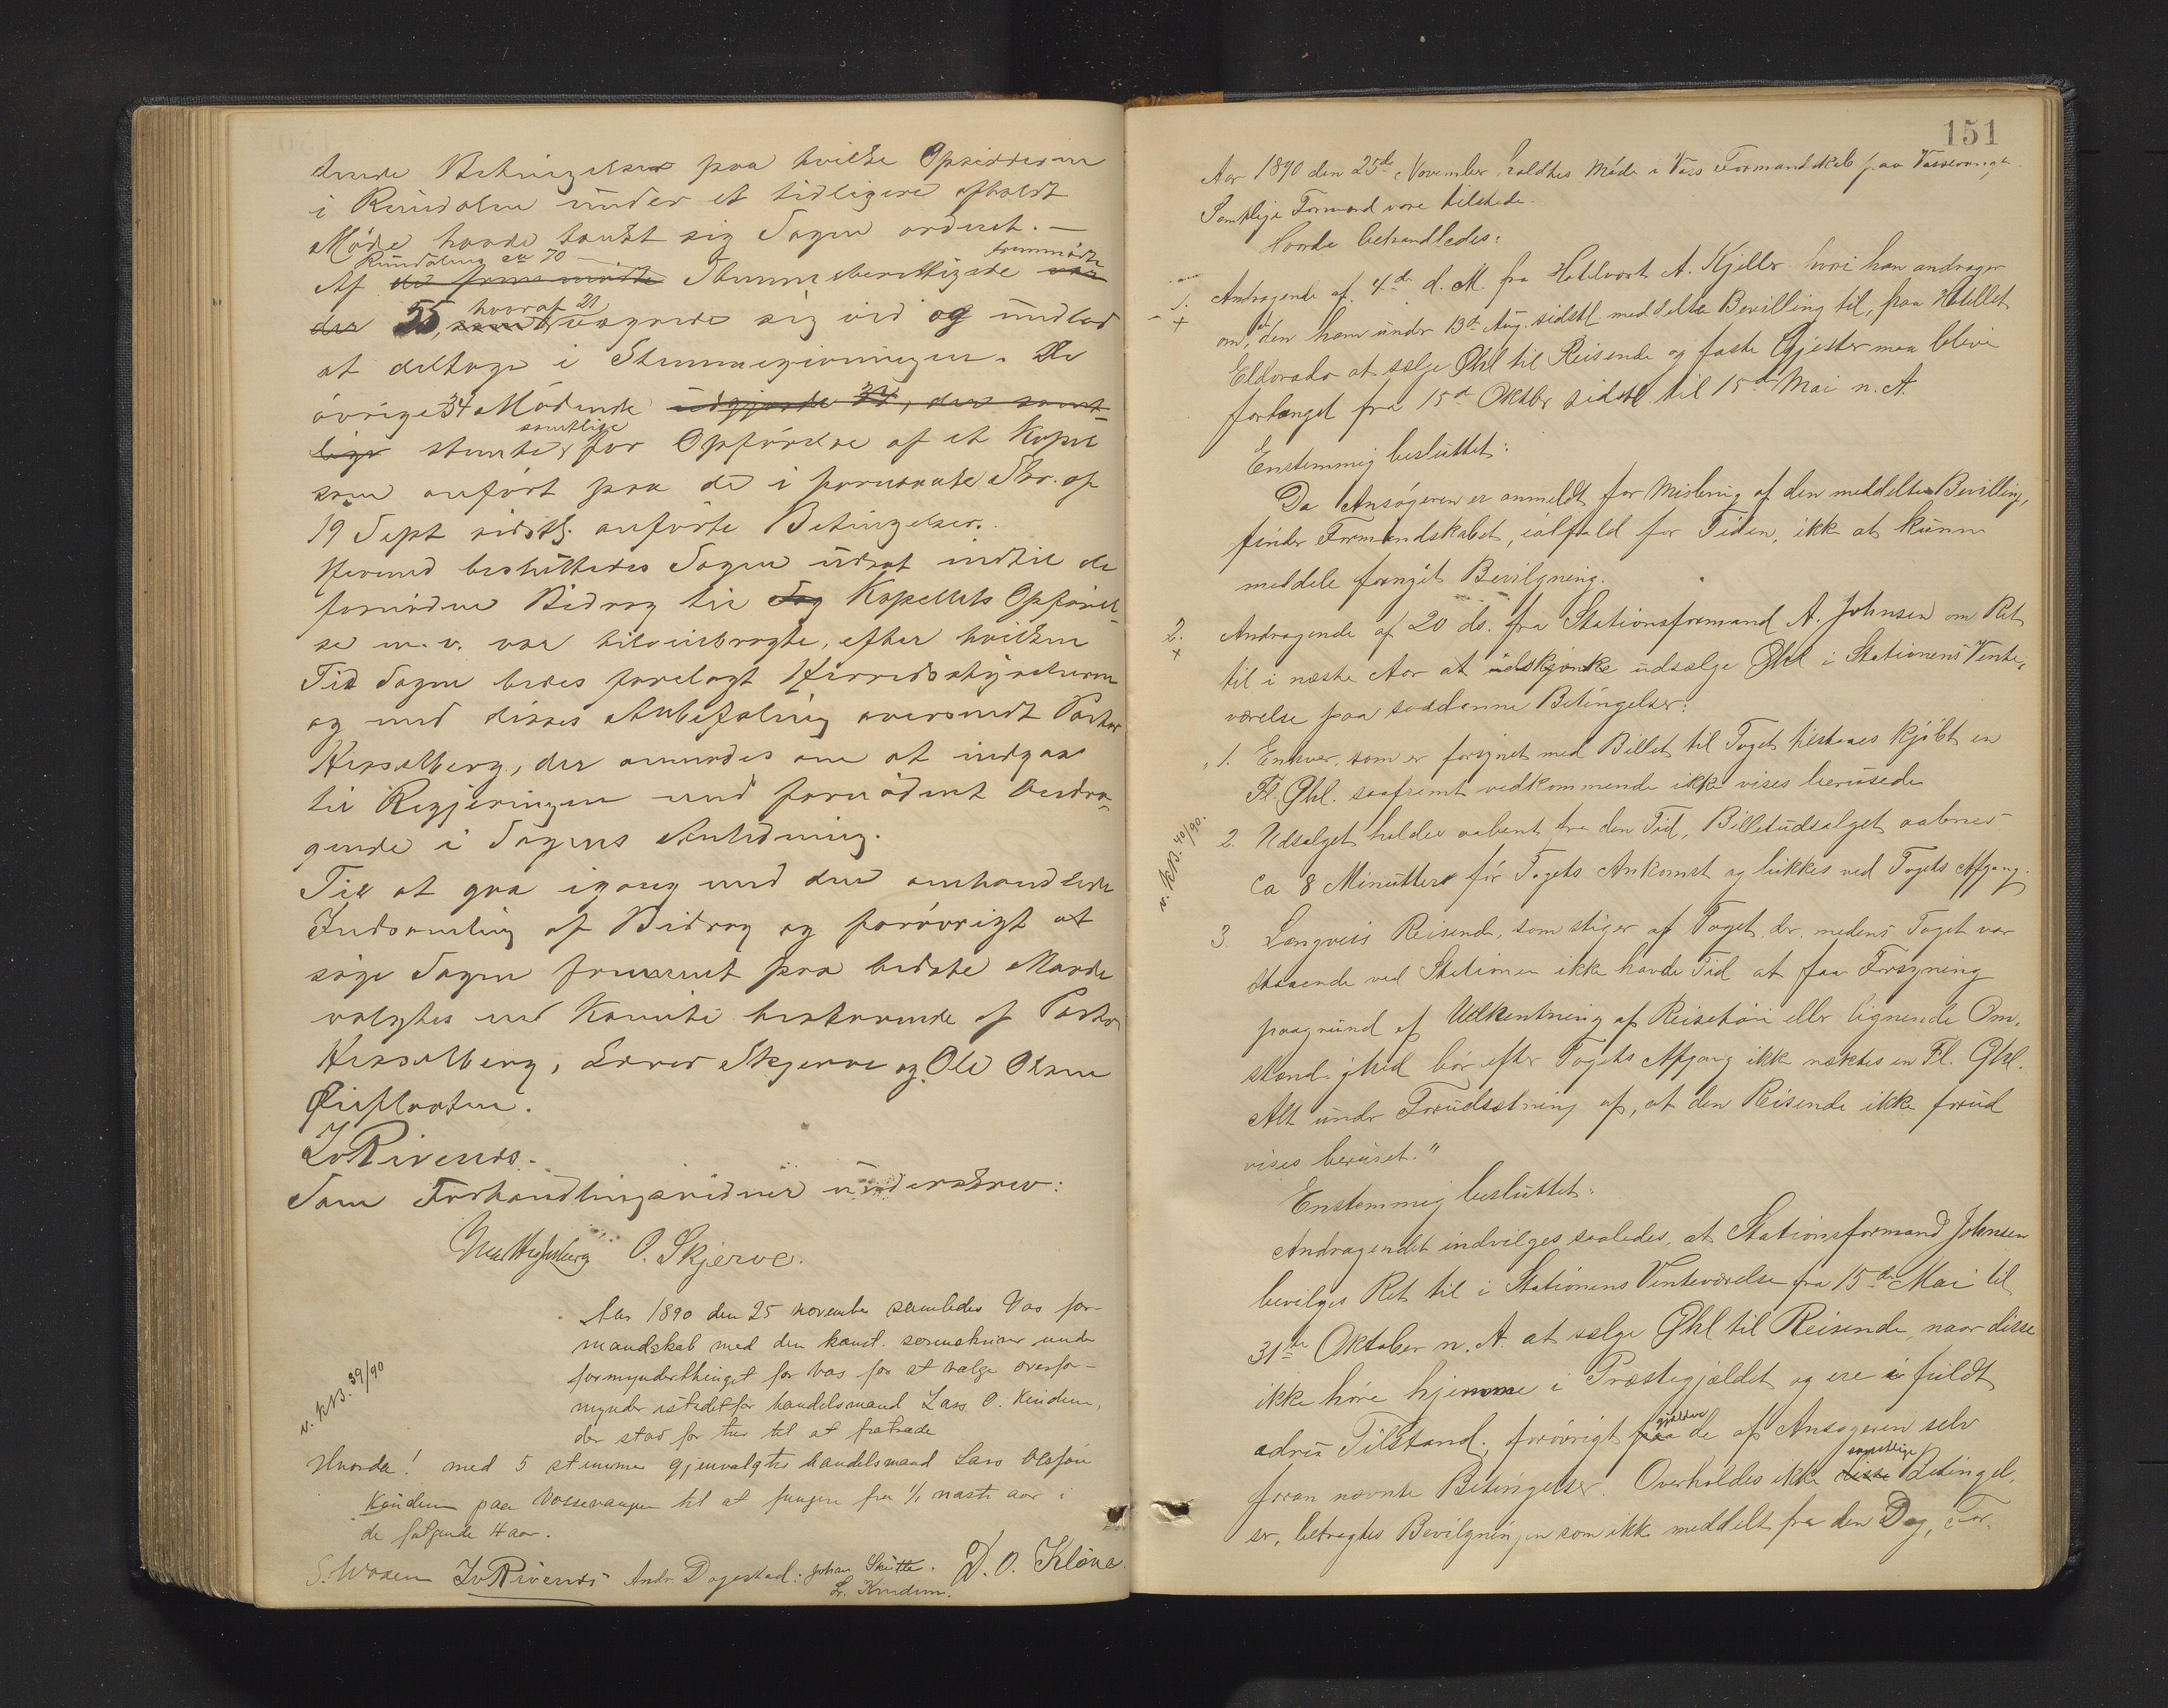 tende Betingelser paa hvilke Opsidderne
i Rundalen under et tidligere afholdt
Møde havde tænkt sig Sagen ordnet. —
Rundalens ca 70 fremmødte
Af de fremmødte Stemmeberettigede var
der 55, hvoraf 21 som vægrede sig ved og undlod
at deltage i Stemmegivningen. De
øvrige 34 Mødende udgjorde 34, der samt-
lige stemte samtlige for Opførelse af et Kapel
som anført paa de i fornævnte Skr. af
19 Sept sidstl. anførte Betingelser.
Herved besluttedes Sagen udsat indtil de
fornødne Bidrag til Sag Kapellets Opførel-
se m. v. var tilveiebragte, efter hvilken
Tid Sagen bedes forelagt Herredsstyrelsen
og med disses Anbefaling oversendt Pastor
Hesselberg, der anmodes om at indgaa
til Regjeringen med fornødent Andra-
gende i Sagens Anledning.
Til at gaa igang med den omhandlede
Indsamling af Bidrag og forøvrigt at
søge Sagen fremmet paa bedste Maade
valgtes en Komite bestaaende af Pastor
Hesselberg, Skjerve og Ole Olsen
LvRivenes.
Som Forhandlingsvidner underskrev:
Hesselberg O. Skjerve.
Aar 1890 den 25 november samledes Vos for-
mandskab med den konst. sorenskriver under
formynderthinget for Vos for at vælge overfor-
mynder istedetfor handelsmand Lars O. Kindem,
der stod for tur til at fratræde
v. KB. 39/90
Hvorda! med 5 stemmer gjenvalgtes handelsmand Lars Olsføn
Kindem paa Vossevangen til at fungere fra 1/1 næste aar i
de følgende 4 aar.
LvRivenes Andr. Dagestad. Johan Skutle. D. O. Kløve.
L. Kindem.
151
Aar 1890 den 25de November holdtes Møde i Vos Formandskab paa Vossevangen.
Samtlige Formænd vare tilstede.
hvorda behandledes:
1. Andragende af 4de d. M. fra Hotelvært A. Kjeller hvori han andrager
om, at den ham under 13de Aug. sidstl. meddelte Bevilling til, paa Hotellet
Eldorado at sælge Øhl til Reisende og faste Gjester maa blive
forlænget fra 15de Oktbr sidstl til 15de Mai n. A.
Enstemmig besluttet:
Da Ansøgeren er anmeldt for Misbrug af den meddelte Bevilling,
finder Formandskabet, ialfald for Tiden, ikke at kunne
meddele fornyet Bevilgning.
2. Andragende af 20 ds. fra Stationsformand A. Johnsen om Ret
til i næste Aar at udskjænke udsælge Øhl i Stationens Vente-
værelse paa saadanne Betingelser:
„1. Enhver, som er forsynet med Billet til Toget tilstaaes kjøbt en
Fl. Øhl. saafremt vedkommende ikke vises berusede
v. KB. 40/90.
2. Udsalget holdes aabent fra den Tid, Billetudsalget aabnes
ca 8 Minutter før Togets Ankomst og lukkes ved Togets Afgang.
3. Langveis Reisende, som stiger af Toget, der, medens Toget var
staaende ved Stationen ikke havde Tid at faa Forsyning
paagrund af Udhentning af Reisetøi eller lignende Om-
stændighed bør efter Togets Afgang ikke nægtes en Fl. Øhl.
Alt under Forudsætning af, at den Reisende ikke forud
vises beruset."
Enstemmig besluttet:
Andragendet indvilges saaledes, at Stationsformand Johnsen
bevilges Ret til i Stationens Venteværelse fra 15de Mai til
31te Oktober n. A. at sælge Øhl til Reisende, naar disse
ikke høre hjemme i Præstegjældet og ere i fuldt
ædru Tilstand; forøvrigt paa gjælder de af Ansøgeren selv
foran nævnte Betingelser. Overholdes ikke disse samtlige Betingel-
ser, betragtes Bevilgningen som ikke meddelt fra den Dag, For-